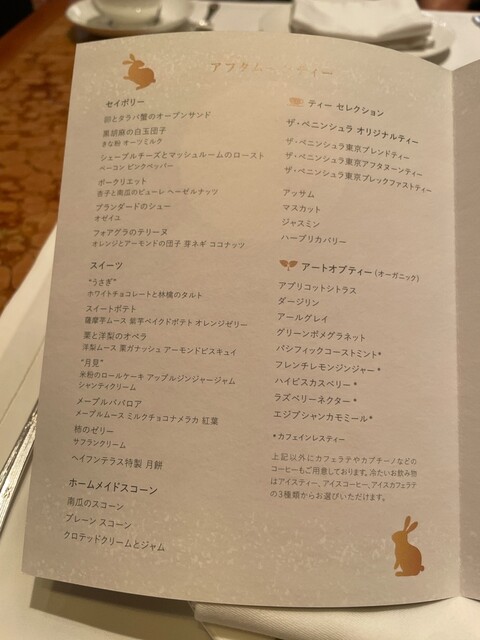 アフタヌーンティー
セイボリー
卵とタラバ蟹のオープンサンド
黒胡麻の白玉団子
きな粉 オーツミルク
シェーブルチーズとマッシュルームのロースト
ベーコン ピンクペッパー
ポークリエット
杏子と南瓜のピューレ ヘーゼルナッツ
ブランダードのシュー
オゼイユ
フォアグラのテリーヌ
オレンジとアーモンドの団子 芽ネギ ココナッツ
スイーツ
"うさぎ"
ホワイトチョコレートと林檎のタルト
スイートポテト
薩摩芋ムース 紫芋ベイクドポテト オレンジゼリー
栗と洋梨のオペラ
洋梨ムース 栗ガナッシュ アーモンドビスキュイ
"月見"
米粉のロールケーキ アップルジンジャージャム
シャンティクリーム
メープルババロア
メープルムース ミルクチョコナメラカ 紅葉
柿のゼリー
サフランクリーム
ヘイフンテラス特製 月餅
ホームメイドスコーン
南瓜のスコーン
プレーン スコーン
クロテッドクリームとジャム
ティー セレクション
ザ・ペニンシュラ オリジナルティー
ザ・ペニンシュラ東京ブレンドティー
ザ・ペニンシュラ東京アフタヌーンティー
ザ・ペニンシュラ東京ブレックファストティー
アッサム
マスカット
ジャスミン
ハーブリカバリー
アートオブティー(オーガニック)
アプリコットシトラス
ダージリン
アールグレイ
グリーンポメグラネット
パシフィックコーストミント*
フレンチレモンジンジャー *
ハイビスカスベリー *
ラズベリーネクター *
エジプシャンカモミール *
*カフェインレスティー
上記以外にカフェラテやカプチーノなどの
コーヒーもご用意しております。冷たいお飲み物
はアイスティー、アイスコーヒー、アイスカフェラテ
の3種類からお選びいただけます。